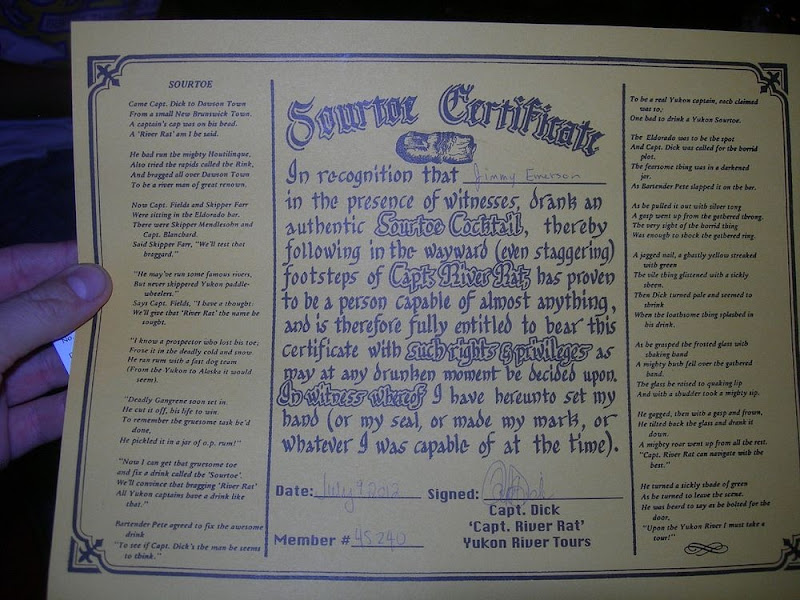 SOURTOE
Came Capt. Dick to Dawson Town
From a small New Brunswick Town.
A captain's cap was on his head.
A 'River Rat' am I he said.
He had run the mighty Houtilinque,
Also tried the rapids called the Rink,
And bragged all over Dawson Town
To be a river man of great renown.
Now Capt. Fields and Skipper Farr
Were sitting in the Eldorado bar.
There were Skipper Mendlesohn and
Capt. Blanchard.
Said Skipper Farr, "We'll test that
braggard."
"He may've run some famous rivers,
But never skippered Yukon paddle-
wheelers."
Says Capt. Fields, "I have a thought:
We'll give that 'River Rat' the name he
sought.
"I know a prospector who lost his toe;
Froze it in the deadly cold and snow
He ran rum with a fast dog team
(From the Yukon to Alaska it would
seem).
"Deadly Gangrene soon set in.
He cut it off, his life to win.
To remember the gruesome task he'd
done,
He pickled it in a jar of o.p. rum!"
"Now I can get that gruesome toe
and fix a drink called the 'Sourtoe'.
We'll convince that bragging 'River Rat'
All Yukon captains have a drink like
that."
Bartender Pete agreed to fix the awesome
drink
"To see if Capt. Dick's the man he seems
to think."
Sourtoe Certificate
In recognition that Jimmy Emerson
in the presence of witnesses, drank an
authentic Sourtoe Cocktail, thereby
following in the wayward (even staggering)
footsteps of Capt. River Rat, has proven
to be a person capable of almost anything,
and is therefore fully entitled to bear this
certificate with such rights & privileges as
may at any drunken moment be decided upon.
In witness whereof I have hereunto set my
hand (or my seal, or made my mark, or
whatever I was capable of at the time).
Date: July 9 2012 Signed:
Capt. Dick
'Capt. River Rat'
Member # 45240 Yukon River Tours
To be a real Yukon captain, each claimed
was to;
One had to drink a Yukon Sourtoe.
The Eldorado was to be the spot
And Capt. Dick was called for the horrid
plot.
The fearsome thing was in a darkened
jar.
As Bartender Pete slapped it on the bar.
As he pulled it out with silver tong
A gasp went up from the gathered throng.
The very sight of the horrid thing
Was enough to shock the gathered ring.
A jagged nail, a ghastly yellow streaked
with green
The vile thing glistened with a sickly
sheen.
Then Dick turned pale and seemed to
shrink
When the loathsome thing splashed in
his drink.
As he grasped the frosted glass with
shaking hand
A mighty hush fell over the gathered
band.
The glass he raised to quaking lip
And with a shudder took a mighty sip.
He gagged, then with a gasp and frown,
He tilted back the glass and drank it
down.
A mighty roar went up from all the rest.
"Capt. River Rat can navigate with the
best."
He turned a sickly shade of green
As he turned to leave the scene.
He was heard to say as he bolted for the
door,
"Upon the Yukon River I must take a
tour!"